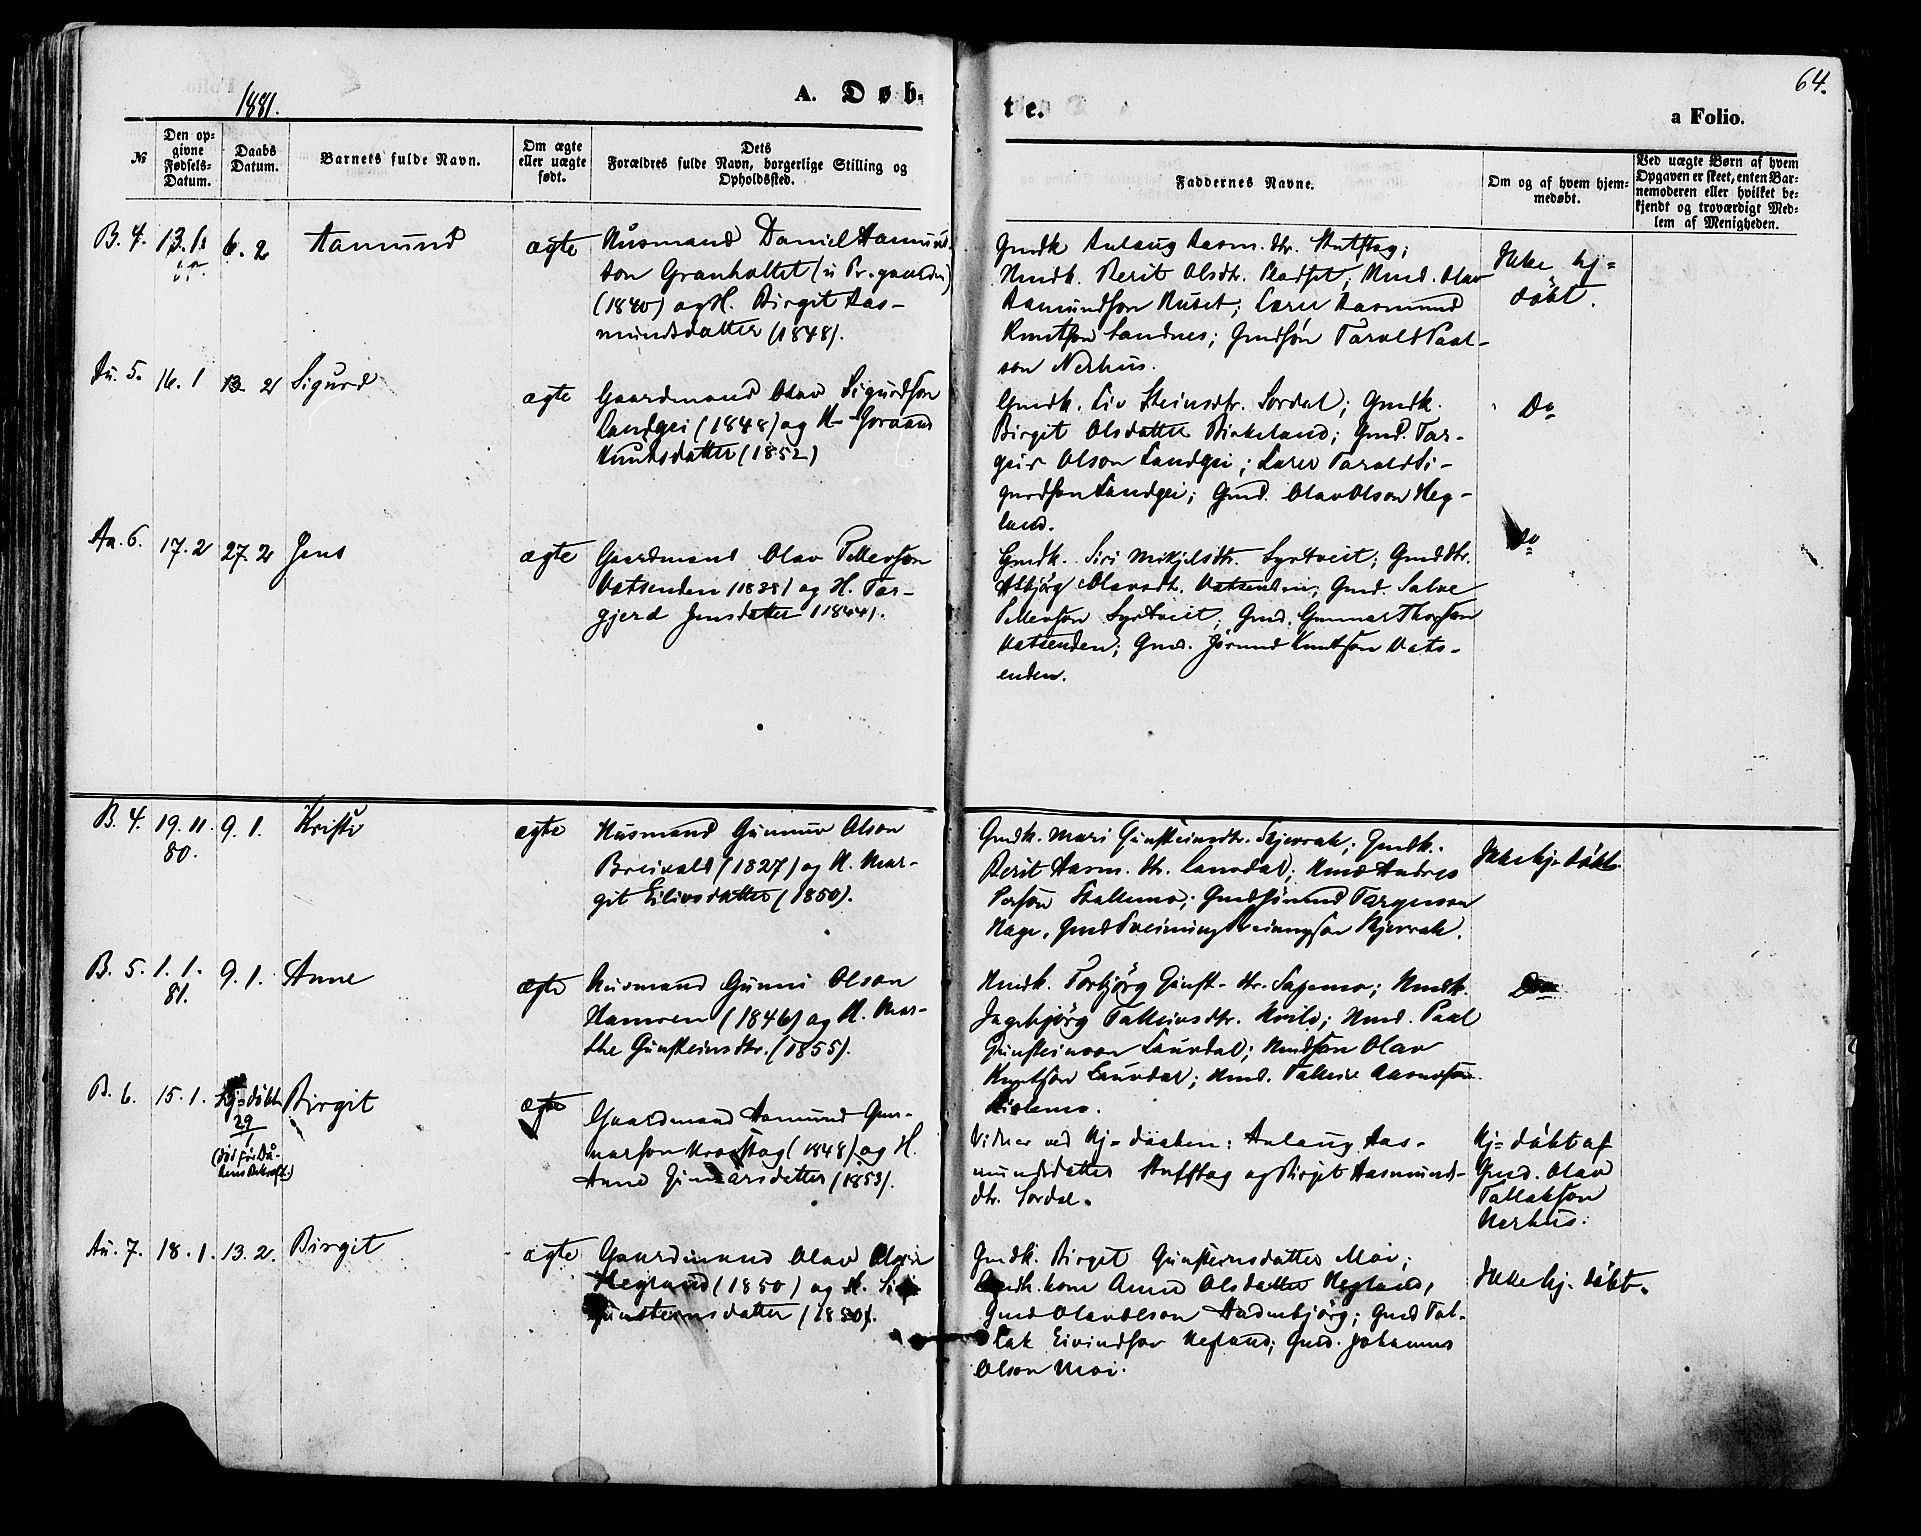 64.
1881.
A. Døb-
te.
a Folio.
№
Den op-
givne
Fødsels-
Datum.
Daabs
Datum.
Barnets fulde Navn.
Om ægte
eller uægte
født.
Dets
Forældres fulde Navn, borgerlige Stilling og
Opholdssted.
Faddernes Navne.
Om og af hvem hjem-
medøbt.
Ved uægte Børn af hvem
Opgaven er skeet, enten Bar-
nemoderen eller hvilket be-
kjendt og troværdigt Med-
lem af Menigheden.
B. 4.
13.1.
6. 2
Aamund
ægte
Husmand Daniel Aamund-
son Granholtet (u Pr. gaarden)
(1840) og H. Birgit Aas-
mundsdatter (1848).
Gmdk Anlaug Aasm. dtr. Stutstog;
Hmdk. Berit Olsdtr. Hmd. Olav
Aamundson Huset; Lærer Aasmund
Knutson Sandnes; Gmdsøn Tarald Paal-
son Nerhus.
Ikke hj=
døbt.
Au. 5.
16. 1
13. 2
Sigurd
ægte
Gaardmand Olav Sigurdson
Landgei (1848) og H. Goraand
Knutsdatter (1852)
Gmdk. Liv Steinsdtr. Sordal; Gmdk.
Birgit Olsdatter Birkeland; Gmd. Tar-
geir Olson Landgei; Lærer Tarald Si-
gurdson Landgei; Gmd. Olav Olson Heg-
land.
Do
Au. 6.
17. 2
27. 2
Jens
ægte
Gaardmand Olav Tellevson
Vatsenden (1838) og H. Tar-
gjerd Jensdatter (1844).
Gmdk. Siri Mikjelsdtr. Syrtveit; Gmddtr.
Asbjörg Olavsdtr. Vatsenden; Gmd. Salve
Tellevson Syrtveit; Gmd. Gunnar Thorson
Vatsenden; Gmd. Jörund Knutson Vats-
enden.
Do
B. 4.
19. 11.
80.
9. 1.
Kristi
ægte
Husmand Gunnuv Olson
Breivald (1827) og H. Mar-
git Eilivsdatter (1850).
Gmdk. Mari Gunsteinsdtr. Skjevrak; Gmdk.
Berit Aasm. dtr. Lauvdal; Hmd Andres
Person Stallemo; Gmd Targeirson
Hage, Gmd Sveinung Sveinungson Skjevrak.
Ikke hj= døbt
B. 5.
1. 1.
81.
9. 1.
Anne
ægte
Husmand Gunni Olson
Hamren (1846) og H. Mar-
the Gunsteinsdtr. (1855).
Hmdk. Torbjörg Gunst. dtr. Sagemo; Hmdk.
Ingebjörg Talleivsdtr. Kvile; Hmd. Paal
Gunsteinson Lauvdal; Hmdson Olav
Knutson Lauvdal; Hmd. Talleiv Aasmdson
Do
B. 6.
15. 1.
hj=døbt
29
1
(død før Daa-
bens Bekræft.)
Birgit
ægte
Gaardmand Aamund Gun-
narson (1848) og H.
Anne Gunarsdatter (1853).
Vidner ved Hj= daaben: Anlaug Aas-
mundsdatter Stutstog og Birgit Aasmunds-
dtr. Sordal.
Hj= døbt af
Gmd. Olav
Tallakson
Nerhus.
Au. 7.
18. 1.
13. 2.
Birgit
ægte
Gaardmand Olav Olson
Hegland (1850) og H. Siri
Gunsteinsdatter (1850).
Gmdk. Birget Gunsteinsdatter Moi;
Gmdk. kone Anne Olsdatter Hegland;
Gmd Olav Olson Aadnebjörg; Gmd Tal-
lak Eivindson Hegland; Gmd. Johannes
Olson Moi.
Ikke hj= døbt.